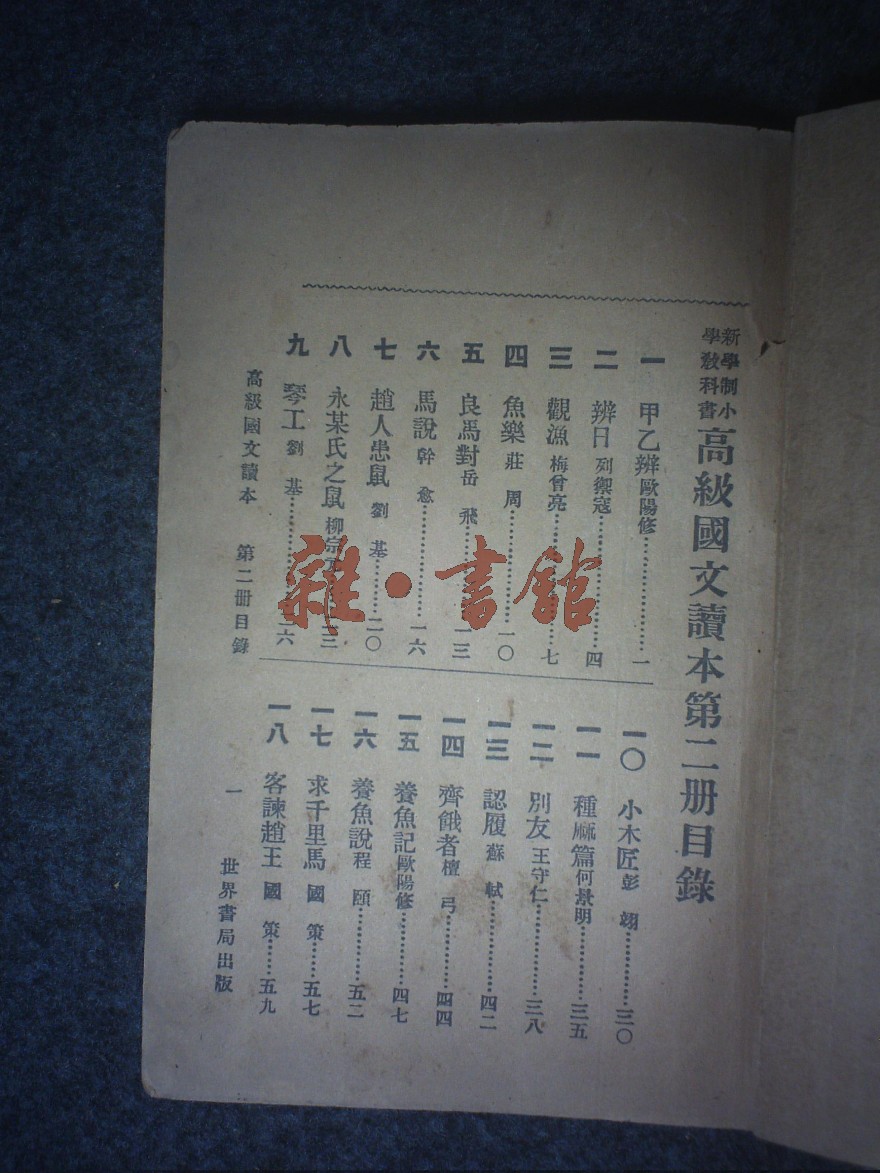 新學制小
學教科書
高級國文讀本第二册目錄
一 甲乙辨 歐陽修…………一
二 辨日 列禦寇…………四
三 觀漁 梅曾亮…………七
四 魚樂 莊周…………一〇
五 良馬對 岳飛…………一三
六 馬說 韓愈…………一六
七 趙人患鼠 劉基…………二〇
八 永某氏之鼠 柳宗元…………二三
九 琴工 劉基…………二六
一〇 小木匠 彭翊…………三〇
一一 種麻篇 何景明…………三五
一二 別友 王守仁…………三八
一三 認履 蘇軾…………四二
一四 齊餓者 檀弓…………四四
一五 養魚記 歐陽修…………四七
一六 養魚說 程頤…………五二
一七 求千里馬 國策……五七
一八 客諫趙王 國策……五九
高級國文讀本 第二册目錄 一 世界書局出版
雜·書館